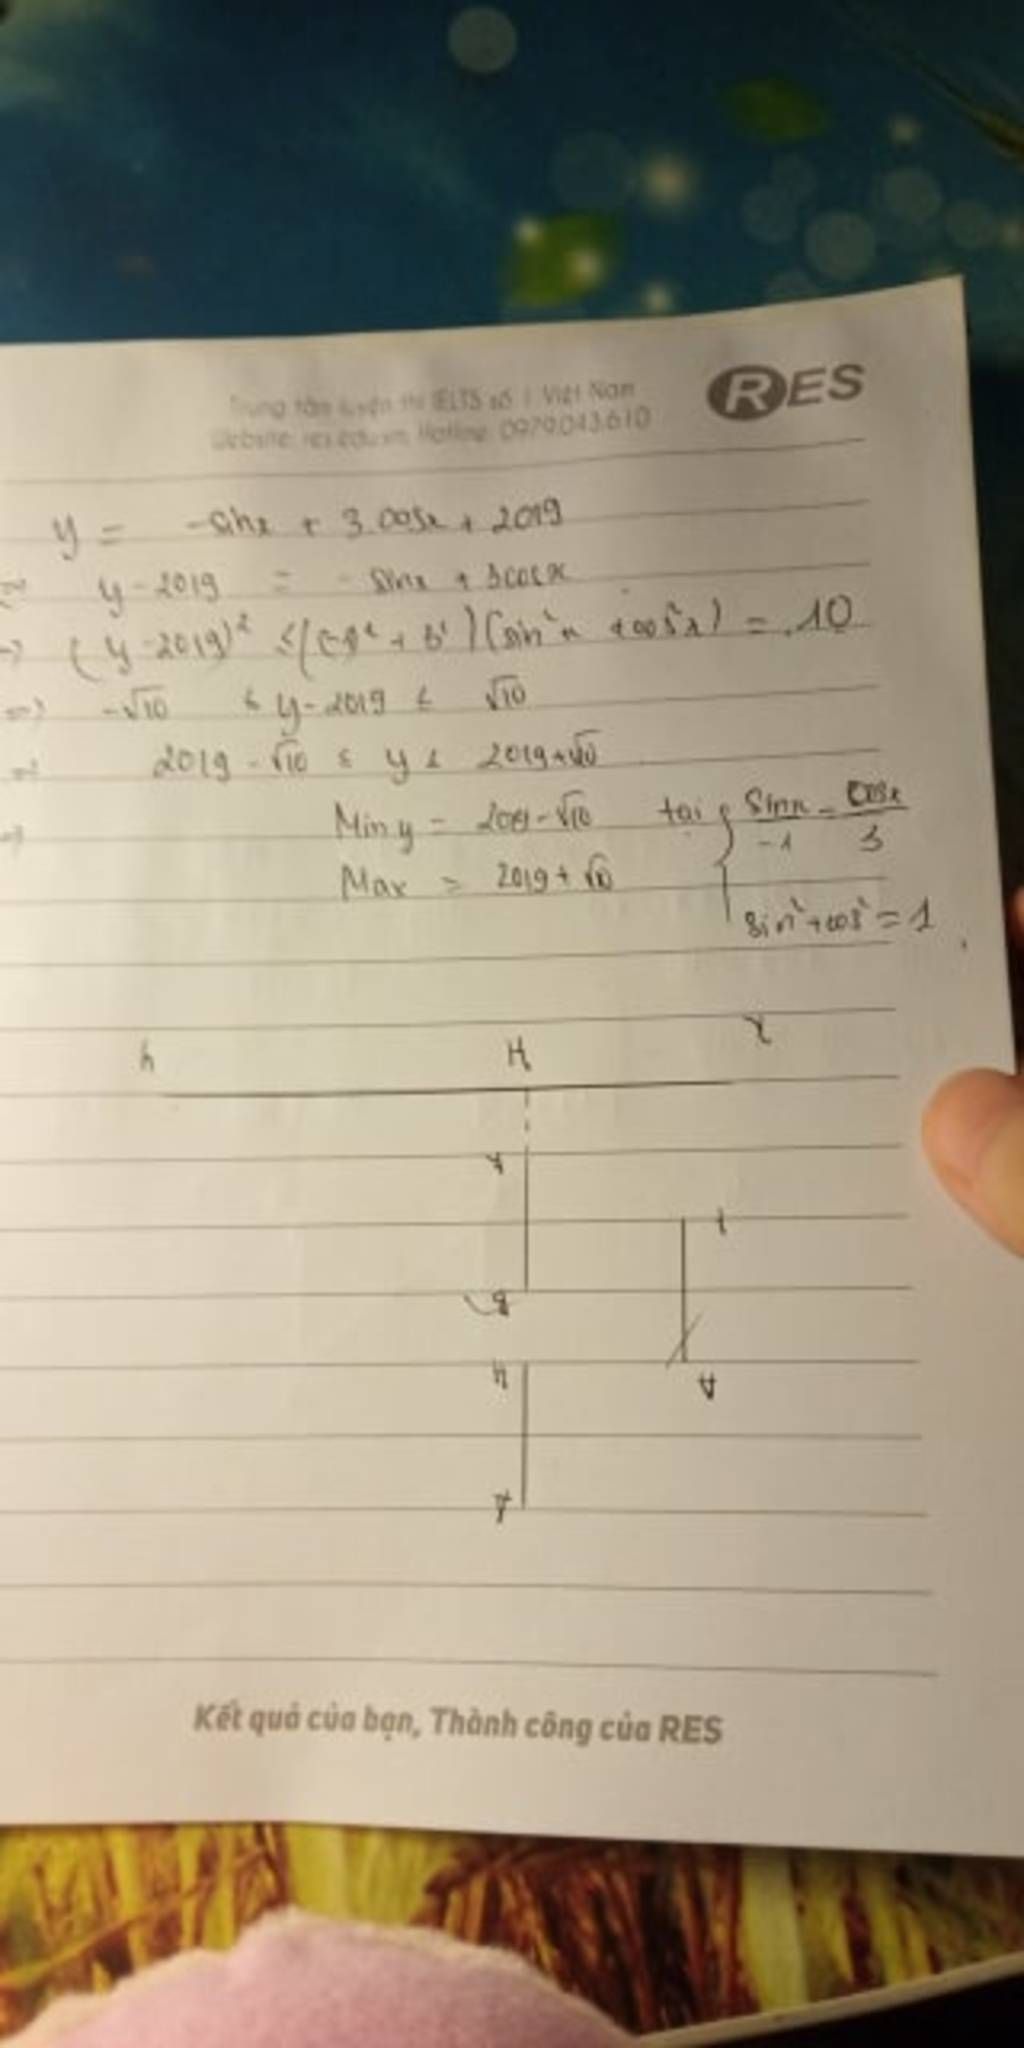 RES
Trung tâm luyện thi IELTS số 1 Việt Nam
Website: res.edu.vn Hotline: 0979.043.610
y = -sinx + 3 cosx + 2019
y - 2019 = - sinx + 3cosx
=> (y - 2019)² ≤ ((-1)² + 3²)(sin²x + cos²x) = 10
=> -√10 ≤ y - 2019 ≤ √10
2019 - √10 ≤ y ≤ 2019 + √10
=> Min y = 2019 - √10 tại { sinx/-1 = cosx/3
Max = 2019 + √10
sin² + cos² = 1
H
A
Kết quả của bạn, Thành công của RES